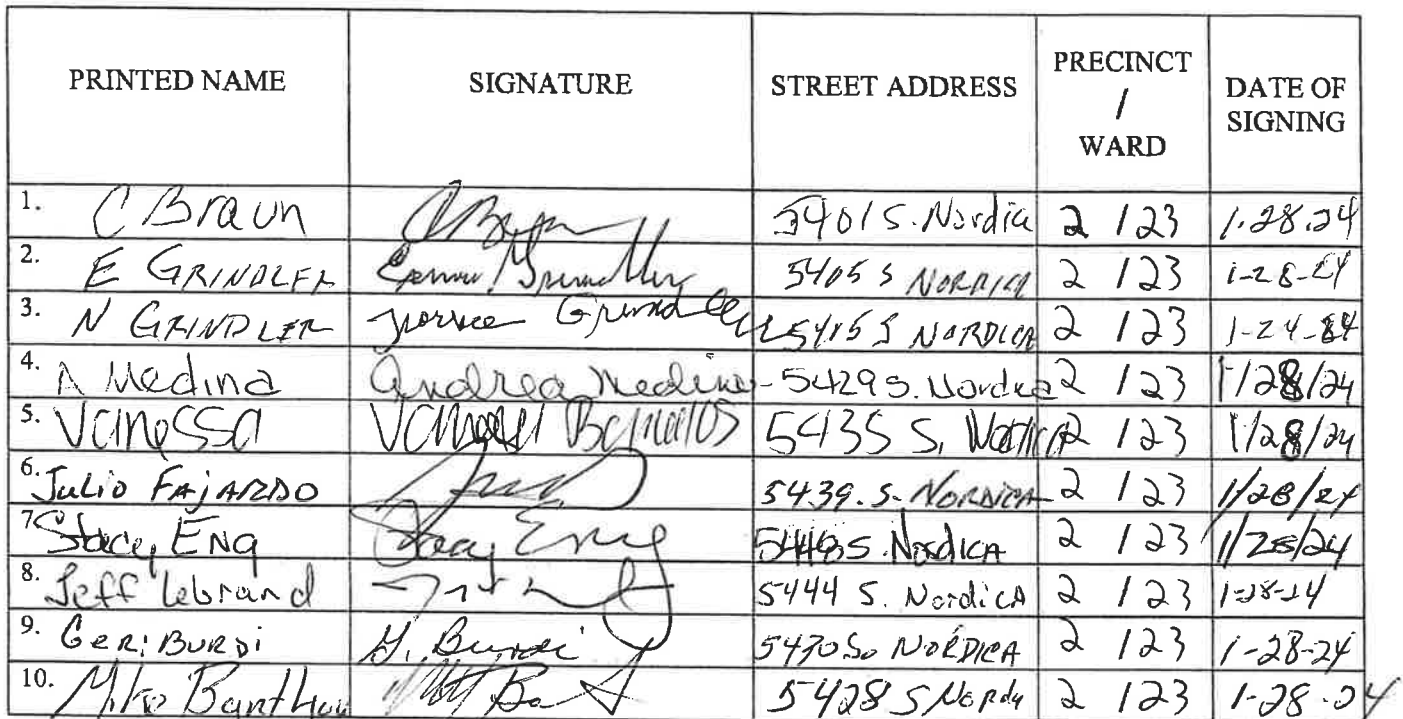 PRINTED NAME SIGNATURE STREET ADDRESS PRECINCT / WARD DATE OF SIGNING
1. C Braun 5401 S. Nordica 2 / 23 1.28.24
2. E GRINDLER 5405 S NORDICA 2 / 23 1-28-24
3. N GRINDLER Grindler 5405 S NORDICA 2 / 23
4. A Medina Andrea Medina 5429 S. Nordica 2 / 23 1/28/24
5. Vanessa Vanessa 5435 S. Nordica 2 / 23 1/28/24
6. Julio FAjARDO 5439. S. NORDICA 2 / 23 1/28/24
7 Stacey ENG Stacy Eng S. NordicA 2 / 23 1/28/24
8. Jeff Lebrand 5444 S. NordicA 2 / 23 1-28-24
9. GERi BURDi G. Burdi 5430 So NORDICA 2 / 23 1-28-24
10. Mike 5428 S Nordi 2 / 23 1-28-24